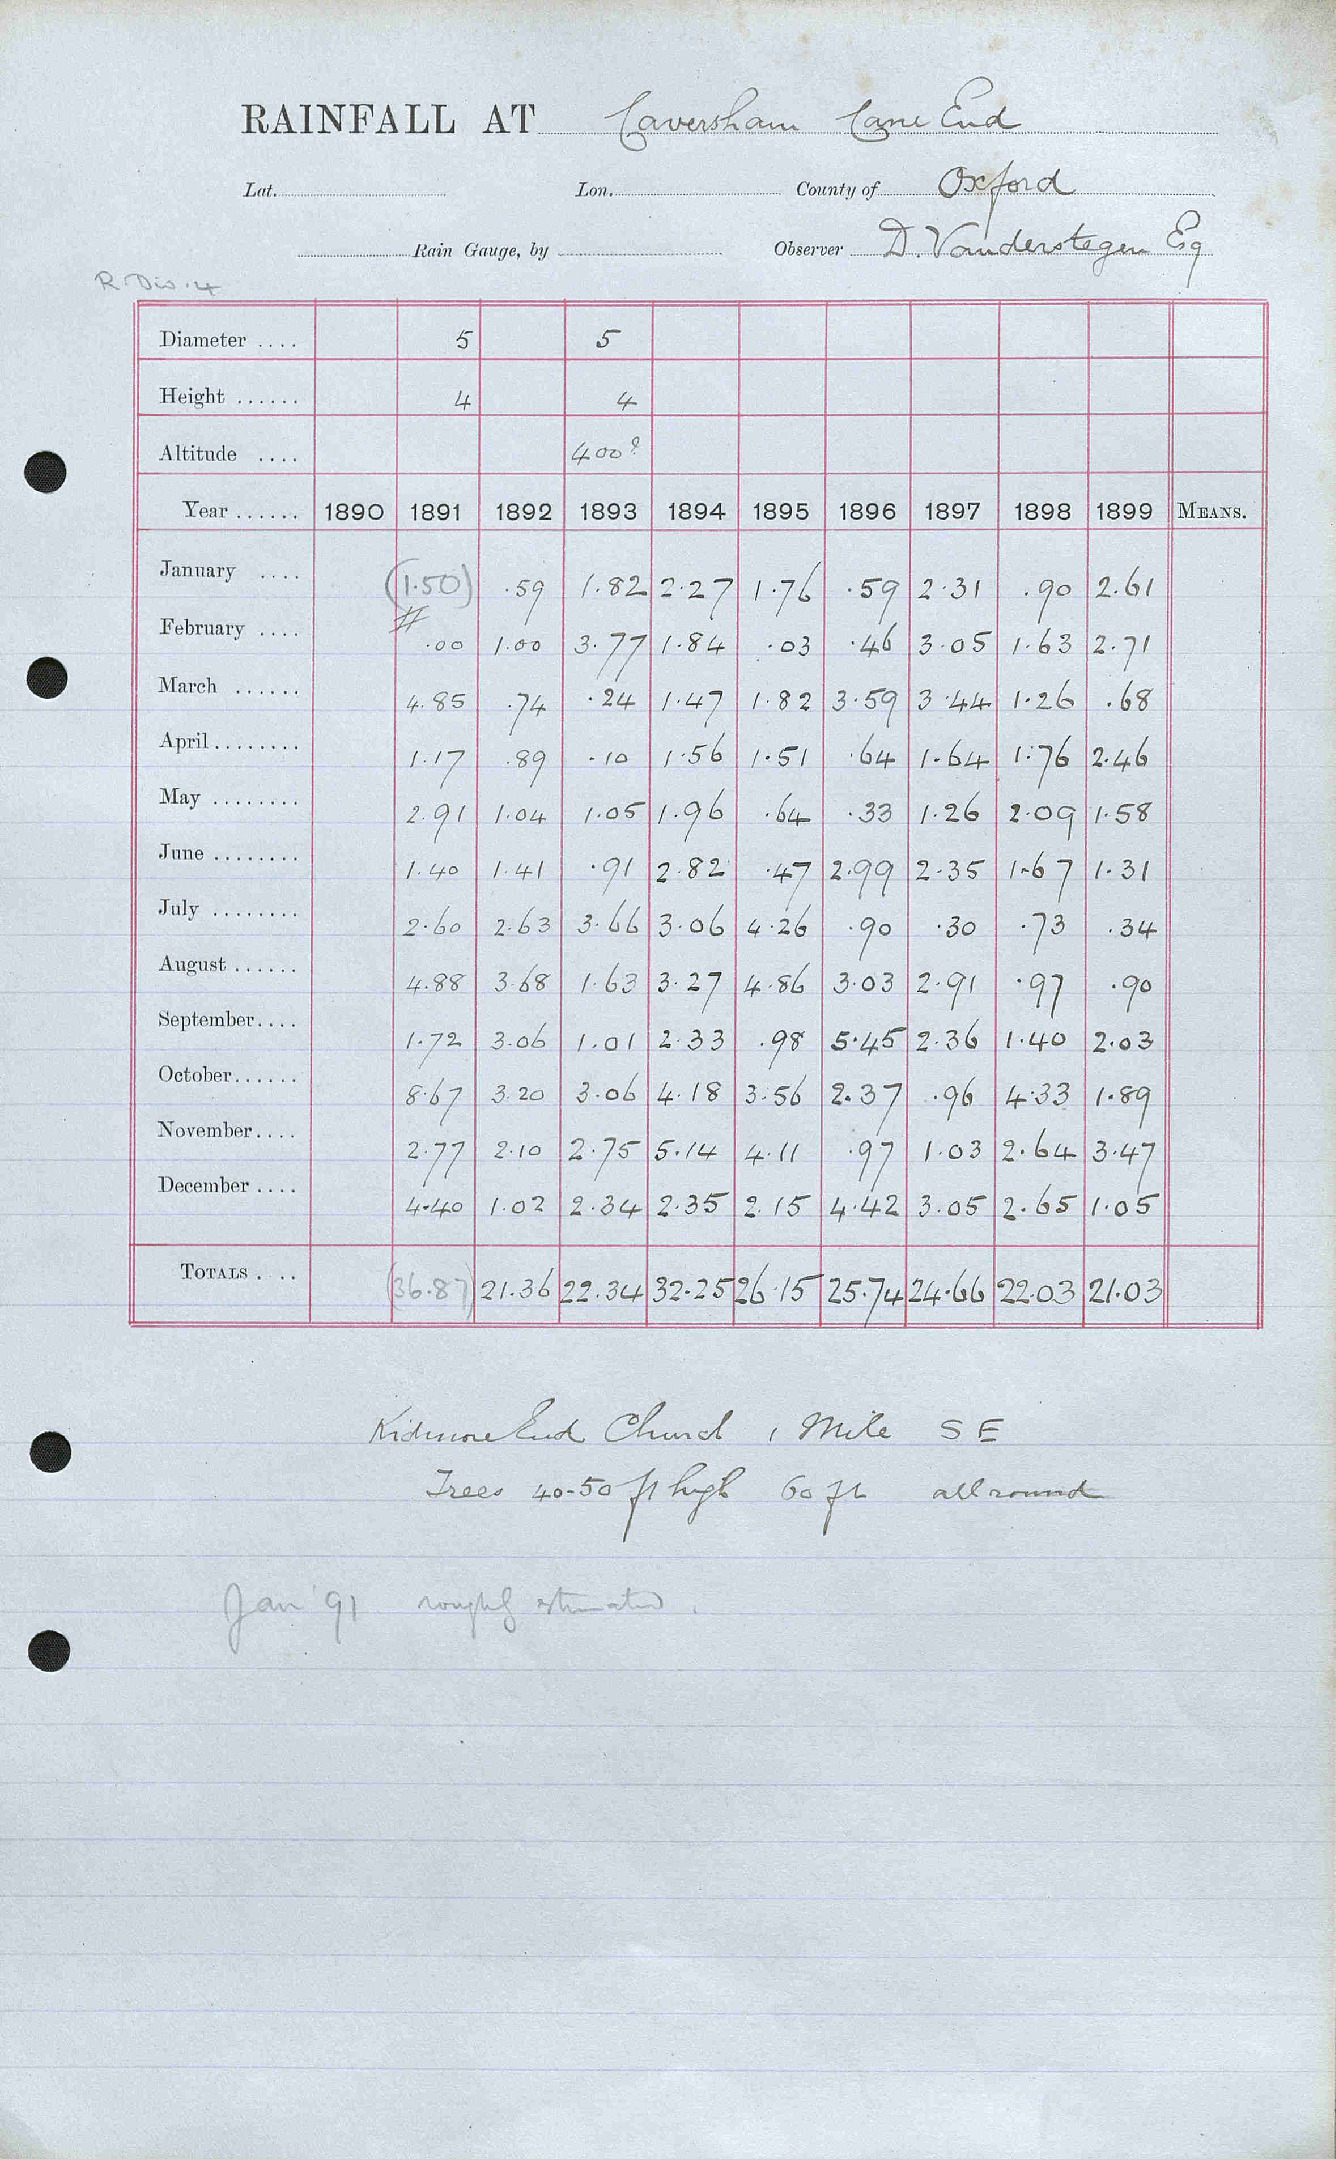 RAINFALL AT Caversham Cane End
Lat. Lon. County of Oxford
Rain Gauge, by Observer D. Vanderstegen Esq
R. Div. 4
Diameter .... 5 5
Height ...... 4 4
Altitude .... 400?
Year ...... 1890 1891 1892 1893 1894 1895 1896 1897 1898 1899 MEANS.
January .... (1.50) .59 1.82 2.27 1.76 .59 2.31 .90 2.61
#
February .... .00 1.00 3.77 1.84 .03 .46 3.05 1.63 2.71
March ...... 4.85 .74 .24 1.47 1.82 3.59 3.44 1.26 .68
April ........ 1.17 .89 .10 1.56 1.51 .64 1.64 1.76 2.46
May ........ 2.91 1.04 1.05 1.96 .64 .33 1.26 2.09 1.58
June ........ 1.40 1.41 .91 2.82 .47 2.99 2.35 1.67 1.31
July ........ 2.60 2.63 3.66 3.06 4.26 .90 .30 .73 .34
August ...... 4.88 3.68 1.63 3.27 4.86 3.03 2.91 .97 .90
September .... 1.72 3.06 1.01 2.33 .98 5.45 2.36 1.40 2.03
October ...... 8.67 3.20 3.06 4.18 3.56 2.37 .96 4.33 1.89
November .... 2.77 2.10 2.75 5.14 4.11 .97 1.03 2.64 3.47
December .... 4.40 1.02 2.34 2.35 2.15 4.42 3.05 2.65 1.05
TOTALS .... (36.87) 21.36 22.34 32.25 26.15 25.74 24.66 22.03 21.03
Kidmore End Church 1 Mile S E
Trees 40-50 ft high 60 ft all round
Jan '91 roughly estimated.